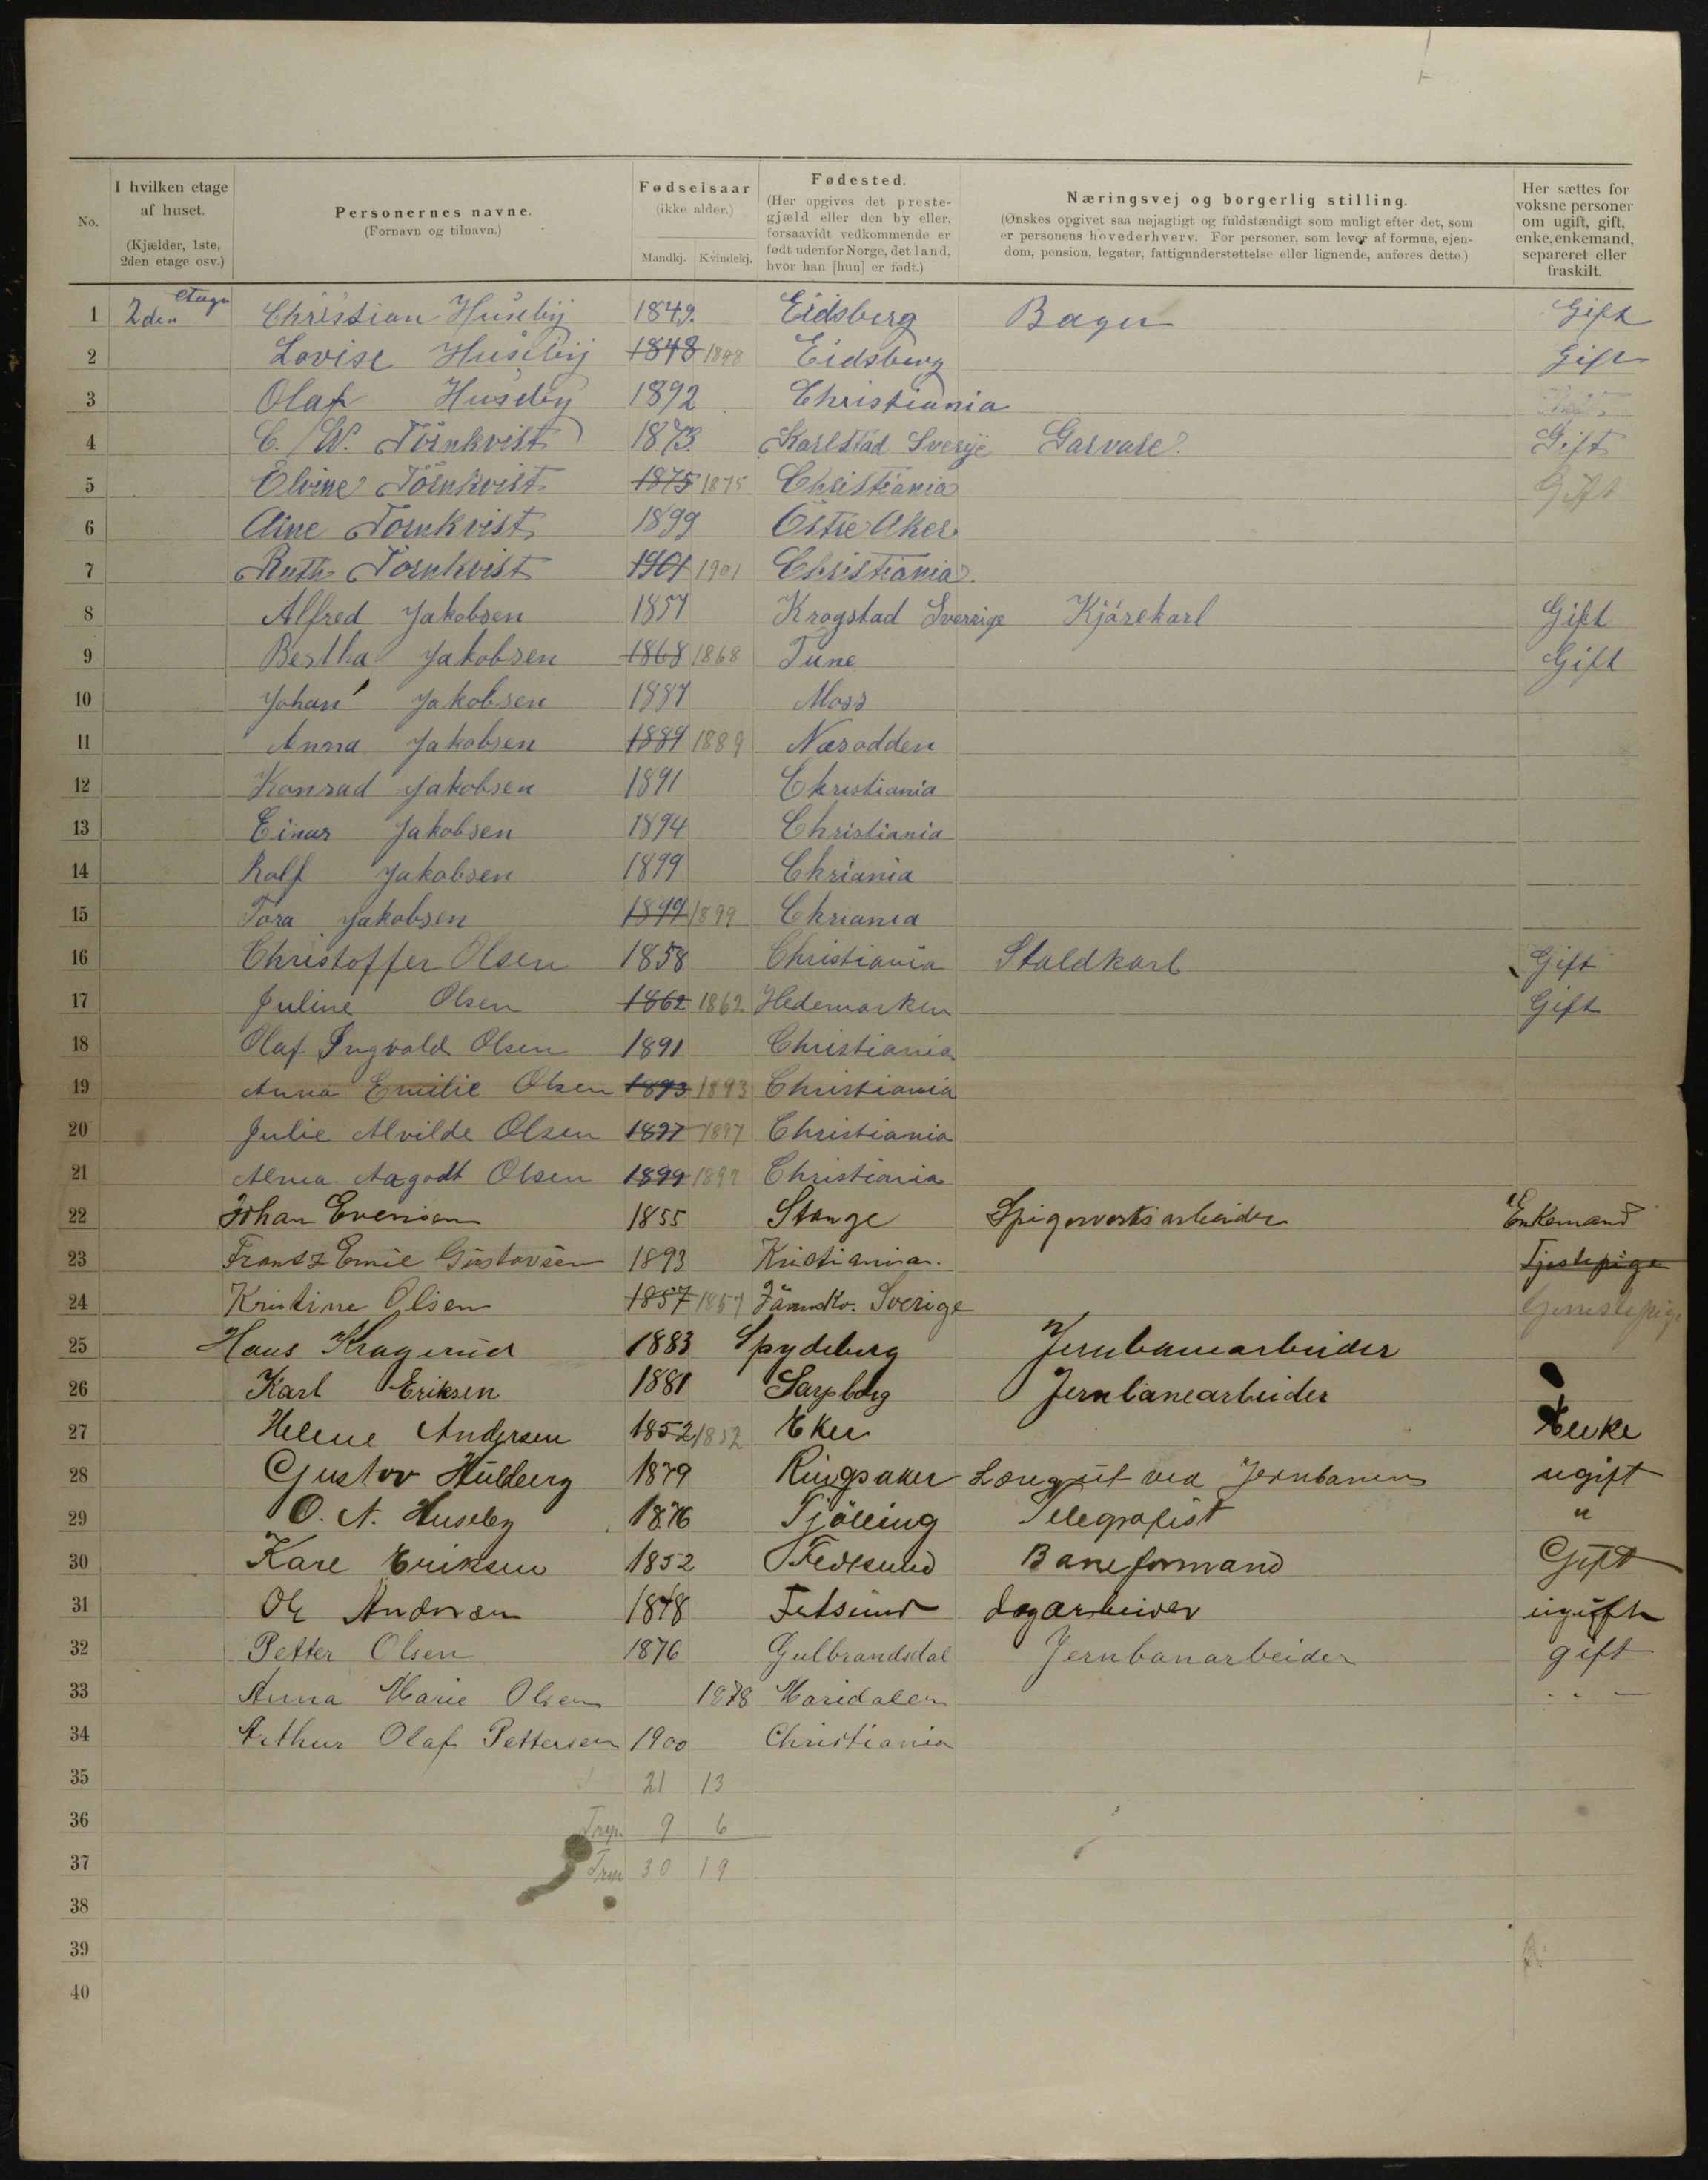 No.
I hvilken etage af huset. (Kjælder, 1ste, 2den etage osv.)
Personernes navne. (Fornavn og tilnavn.)
Fødselsaar (ikke alder.) Mandkj. Kvindekj.
Fødested. (Her opgives det prestegjæld eller den by eller, forsaavidt vedkommende er født udenfor Norge, det land, hvor han [hun] er født.)
Næringsvej og borgerlig stilling. (Ønskes opgivet saa nøjagtigt og fuldstændigt som muligt efter det, som er personens hovederhverv. For personer, som lever af formue, ejendom, pension, legater, fattigunderstøttelse eller lignende, anføres dette.)
Her sættes for voksne personer om ugift, gift, enke, enkemand, separeret eller fraskilt.
1 2den etage Christian Huseby 1849. Eidsberg Bager Gift
2 Lovise Huseby 1848 1848 Eidsberg Gift
3 Olaf Huseby 1892 Christiania
4 C. W. Törnkvist 1873. Karlstad Sverje Garvare. Gift
5 Elvine Törnkvist 1875 1875 Christiania Gift
6 Aine Törnkvist 1899 Östre Aker
7 Ruth Törnkvist 1901 1901 Christiania.
8 Alfred Jakobsen 1857 Krogstad Sverrige Kjörekarl Gift
9 Bertha Jakobsen 1868 1868 Tune Gift
10 Johan Jakobsen 1887 Moss
11 Anna Jakobsen 1889 1889 Næsodden
12 Konrad Jakobsen 1891 Christiania
13 Einar Jakobsen 1894 Christiania
14 Rolf Jakobsen 1899 Chriania
15 Tora Jakobsen 1899 1899 Chriania
16 Christoffer Olsen 1858 Christiania Staldkarl Gift
17 Juline Olsen 1862 1862 Hedemarken Gift
18 Olaf Ingvald Olsen 1891 Christiania
19 Anna Emilie Olsen 1893 1893 Christiania
20 Julie Alvilde Olsen 1897 1897 Christiania
21 Alma Aagodt Olsen 1899 1899 Christiania
22 Johan Evensen 1855 Stange Spigerverksarbeider Enkemand
23 Frantz Emil Gustavsen 1893 Kristiania. Tjestepige
24 Kristine Olsen 1857 1857 Sverige
25 Hans Kragerud 1883 Spydeberg Jernbanearbeider
26 Karl Eriksen 1881 Sarpborg Jernbanearbeider
27 Helene Andersen 1852 1852 Eker Enke
28 Gustav Hulberg 1879 Ringsaker Læregut ved Jernbanen ugift
29 O. A. Huseby 1876 Tjölling Telegrafist "
30 Karl Eriksen 1852 Fedtsund Baneformand Gift
31 Ole Andersen 1878 Fetsund dagarbeider ugift
32 Petter Olsen 1876 Gulbrandsdal Jernbanarbeider gift
33 Anna Marie Olsen 1878 Maridalen - " -
34 Arthur Olaf Pettersen 1900 Christiania
35 21 13
36 9 6
37 30 19
38
39
40